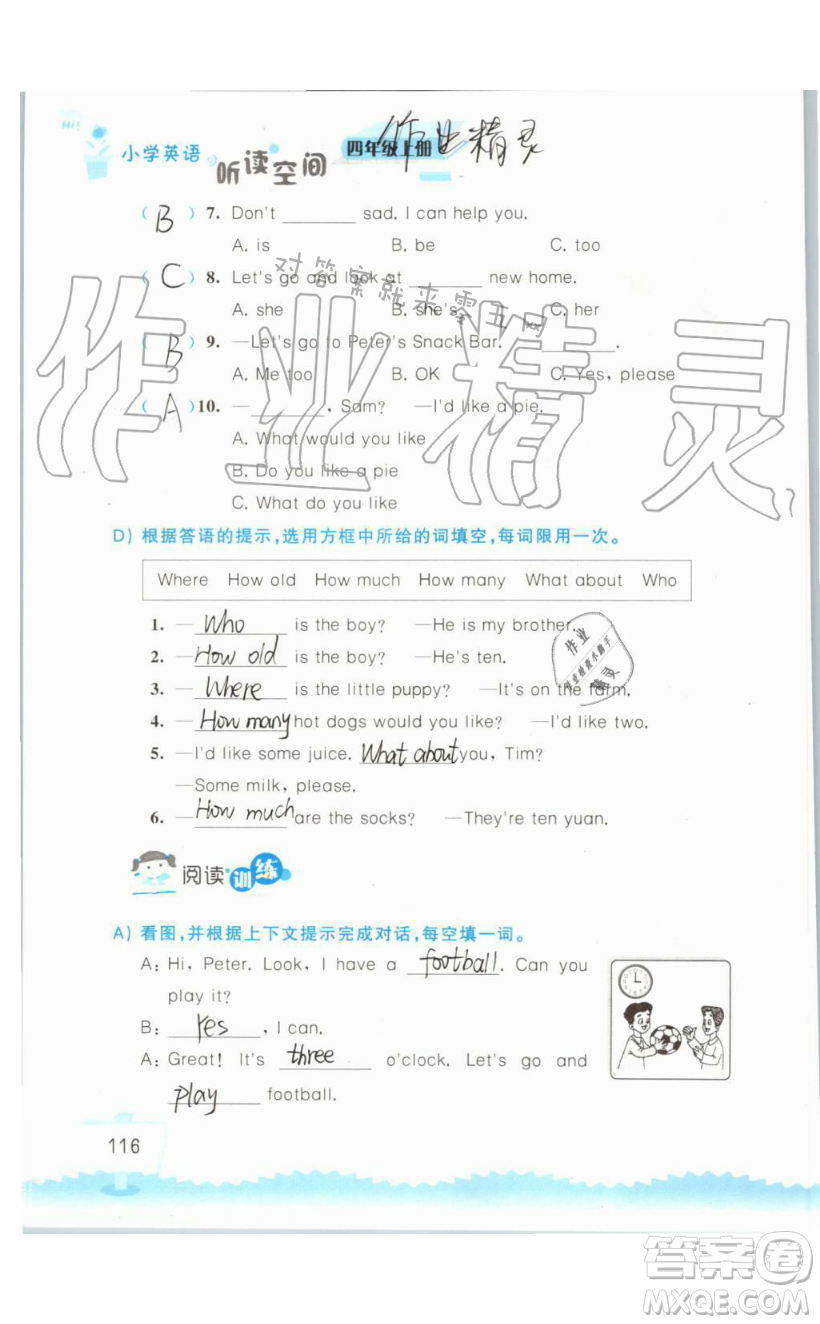 Hi!
小学英语
听读空间
四年级上册
作业精灵
( B ) 7. Don't ________ sad. I can help you.
A. is B. be C. too
( C ) 8. Let's go and look at ________ new home.
A. she B. she's C. her
( B ) 9. —Let's go to Peter's Snack Bar. ________.
A. Me too B. OK C. Yes, please
( A ) 10. —________, Sam? —I'd like a pie.
A. What would you like
B. Do you like a pie
C. What do you like
对答案就来零五网
作业精灵
D) 根据答语的提示,选用方框中所给的词填空,每词限用一次。
Where How old How much How many What about Who
1. —Who is the boy? —He is my brother.
2. —How old is the boy? —He's ten.
3. —Where is the little puppy? —It's on the farm.
4. —How many hot dogs would you like? —I'd like two.
5. —I'd like some juice. What about you, Tim?
—Some milk, please.
6. —How much are the socks? —They're ten yuan.
作业
精灵
阅读训练
A) 看图,并根据上下文提示完成对话,每空填一词。
A: Hi, Peter. Look, I have a football. Can you
play it?
B: Yes, I can.
A: Great! It's three o'clock. Let's go and
play football.
116
答案卷
MXQE.COM